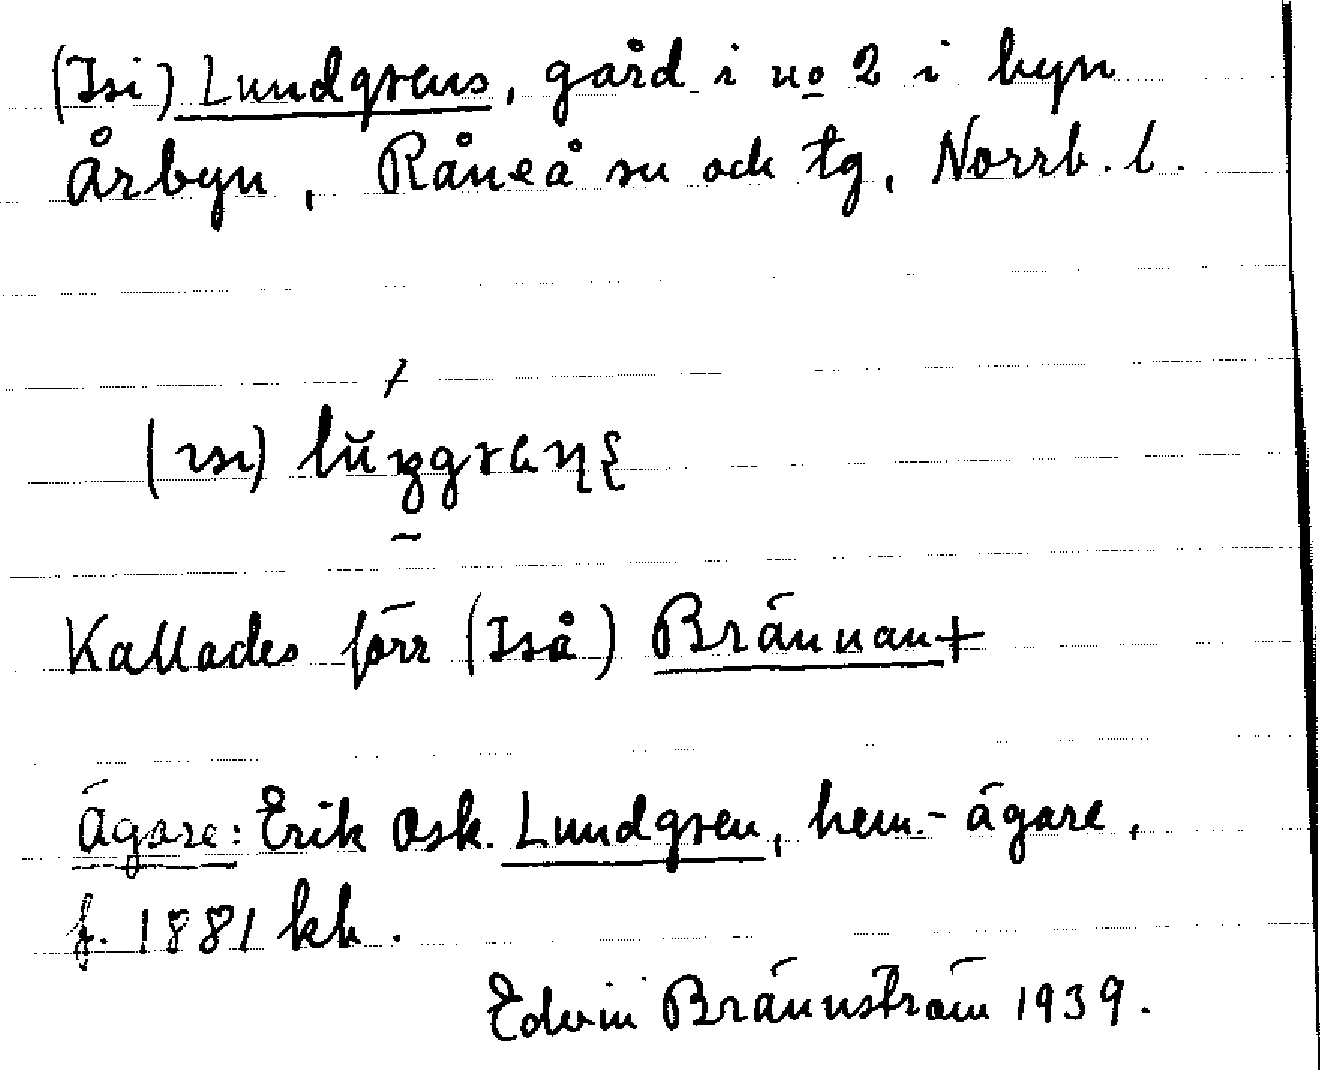 (Isi) Lundgrens, gård i no 2 i byn
Årbyn, Råneå sn och tg, Norrb. l.
(ısı)
Kallades förr (Iså) Brännan+
Ägare: Erik Osk. Lundgren, hem.-ägare,
f. 1881 kb.
Edvin Brännström 1939.